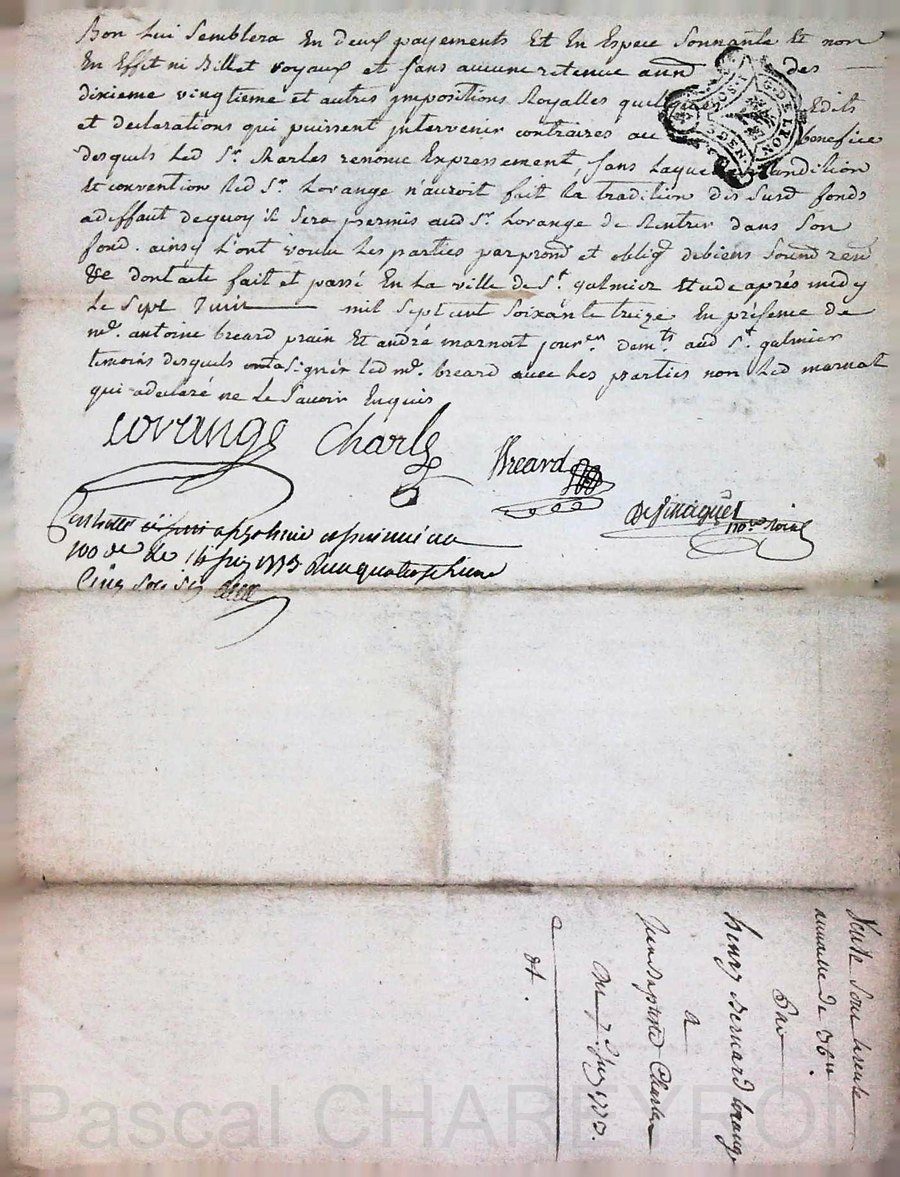 Bon Lui Semblera En deux payements Et En Espece Sonnante Et non
En Effet ni Billet Royaux et sans aucune retenue aud des
dixieme vingtieme et autres impositions Royalles Edits
et declarations qui puissent jntervenir contraires au benefice
desquels led Sr. Charles renonce Expressement, sans condition
Et convention led Sr. Lorange n'auroit fait la tradition des Susd fonds
a deffaut de quoy il Sera permis aud Sr. Lorange de Rentrer dans Son
fond. ainsy L'ont voulu Les parties par prom et oblig de biens Soum ren
&c dont acte fait et passé En La ville de St. galmier Etude après midy
Le Sept Juin mil Sept cent Soixante treize En présence de
me. antoine breard prain Et andré marnat jour.er dem.ts aud St. galmier
temoins desquels ont signér led me. breard avec Les parties non Led marnat
qui a declaré ne Le Savoir Enquis
Lorange Charles
Breard
no.re roial
1773
Cinq Sols Six
G. DE LYON
Vente Sous
annuelle de
Par
henry Bernard Lorange
a
Jean Baptiste Charles
Du 7 Juin 1773.
Pascal CHAREYRON